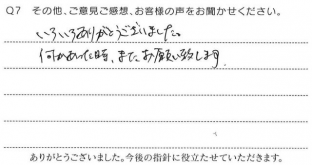 Q7 その他、ご意見ご感想、お客様の声をお聞かせください。
いろいろありがとうございました。
何かあった時、またお願い致します。
ありがとうございました。今後の指針に役立たせていただきます。